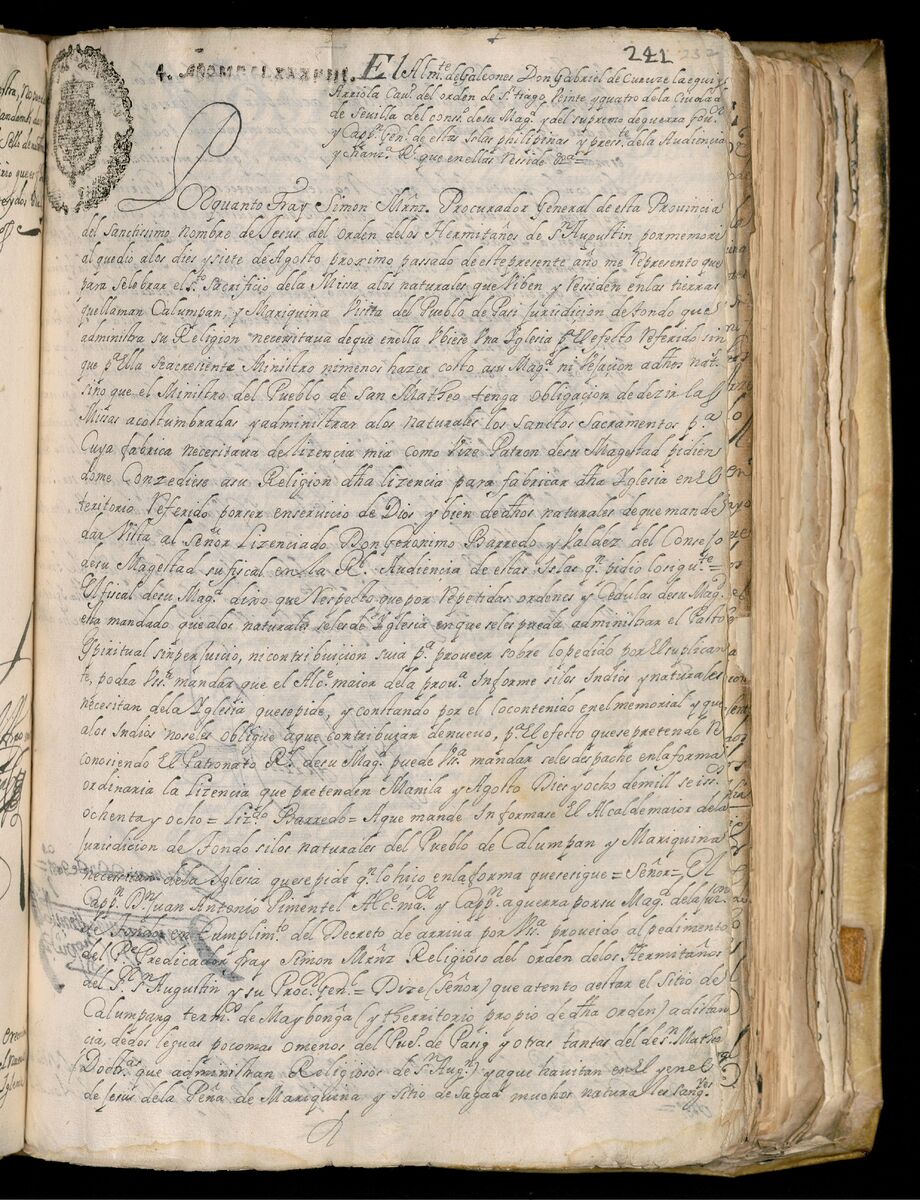 241 232
4. El Almte. de Galeones Don Gabriel de Curuzelaegui y
Arriola Cauo. del orden de Stiago, Veinte y quatro dela Ciudad
de Seuilla del conso. desu Magd. y del supremo de guerra Gour.
y Cappn. Genl. de estas Islas philipinas y preste. dela Audiencia
y chanza. Rl. que en ellas Reside &a=
Por quanto Fray Simon Mrñz. Procurador General de esta Prouincia
del Sanctissimo nombre de Jesus del Orden delos Hermitaños de Sn. Augustin por memori
al que dio alos dies y siete de Agosto proximo passado de este presente año me Represento que
para selebrar el sto. Sacrificio dela Missa alos naturales que Viben y Residen en las tierras
que llaman Calumpan, y Mariquina Visita del Pueblo de Pasi Jurisdicion de tondo que
administra su Religion necesitaua de que en ella Vbiese Vna Iglesia pa. El efecto Referido sin
que pa. Ella se acresiente Ministro ni menos hazer costo a su Magd. ni Vejacion a dhos natls.
sino que el Ministro del Pueblo de San Matheo tenga Obligacion de dezir las
Missas acostumbradas y administrar alos naturales los Sanctos Sacramentos pa.
Cuya fabrica necesitaua de lizencia mia como Vize Patron de su Magestad pidien
dome Conzediese a su Religion dha lizencia para fabricar dha Yglesia en El
teritorio Referido por ser en seruicio de Dios y bien de dhos naturales de que mandé
dar Vista al Señor Lizenciado Don Geronimo Barredo y Valdez del Consejo
de su Magestad su fiscal en la Rl. Audiencia de estas Islas qn. pidio lo sigte.=
El fiscal de su Magd. dize que Respecto que por Repetidas ordenes y Cedulas de su Magd.
esta mandado que alos naturales seles dé Yglesia en que seles pueda administrar el Pasto
Spiritual sin perjuicio, ni contribuicion suia pa. proveer sobre lo pedido por El suplican
te, podra Vsa. mandar que el Alce. maior dela proua. Informe si los Indios y naturales
necesitan dela Yglesia que se pide, y constando por el lo contenido en el memorial y que
alos Indios no seles obligue a que contribuyan de nueuo, pa. El efecto que se pretende Re
conosiendo El Patronato Rl. de su Magd. puede Vsa. mandar seles despache en la forma
ordinaria la lizencia que pretenden Manila y Agosto Dies y ocho de mill seissos.
ochenta y ocho = Lizdo. Barredo = A que mandé Informase El Alcalde maior dela
Jurisdicion de Tondo si los naturales del Pueblo de Calumpan y Mariquina
necesitan dela Iglesia que se pide qn. lo hizo en la forma que se sigue = Señor = El
Cappn. Dn. Juan Antonio Pimentel Alce. maor. y Cappn. a guerra por su Magd. dela Juron.
de tondo en Cumplimto. del Decreto de arriva por Vsa. proveido al pedimento
del Pe. Predicador fray Simon Mrñz Religioso del orden delos Hermitaños
del Sr. Sn. Augustin y su Procor. Genl. = Dize (Señor) que atento de estar el Sitio de
Calumpang termo. de Maybonga (y therritorio propio de dha Orden) a distan
cia, de dos leguas poco mas o menos del Puo. de Pasig y otras tantas del de Sn. Matheo
Doctras. que administran Religiosos de Sn. Augn. y a que havitan en El y en el
de Jesus dela Peña de Mariquina y Sitio de Sagad muchos naturales Sangs.